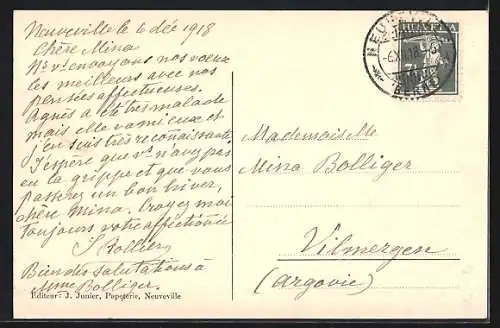 Neuveville le 6 déc 1918
Chère Mina
Ns vs envoyons nos voeux
les meilleurs avec nos
pensées affectueuses.
Agnès a été très malade
mais elle va mieux et
j'en suis très reconnaissante
J'espère que vs n'avez pas
eu la grippe et que vous
passerez un bon hiver,
chère Mina. Croyez moi
toujours votre affectionée
J Rollier
Bien des salutations à
Mme Bolliger.
Editeur: J. Junier, Papeterie, Neuveville
HELVETIA
Mademoiselle
Mina Bolliger
Vilmergen
(Argovie)